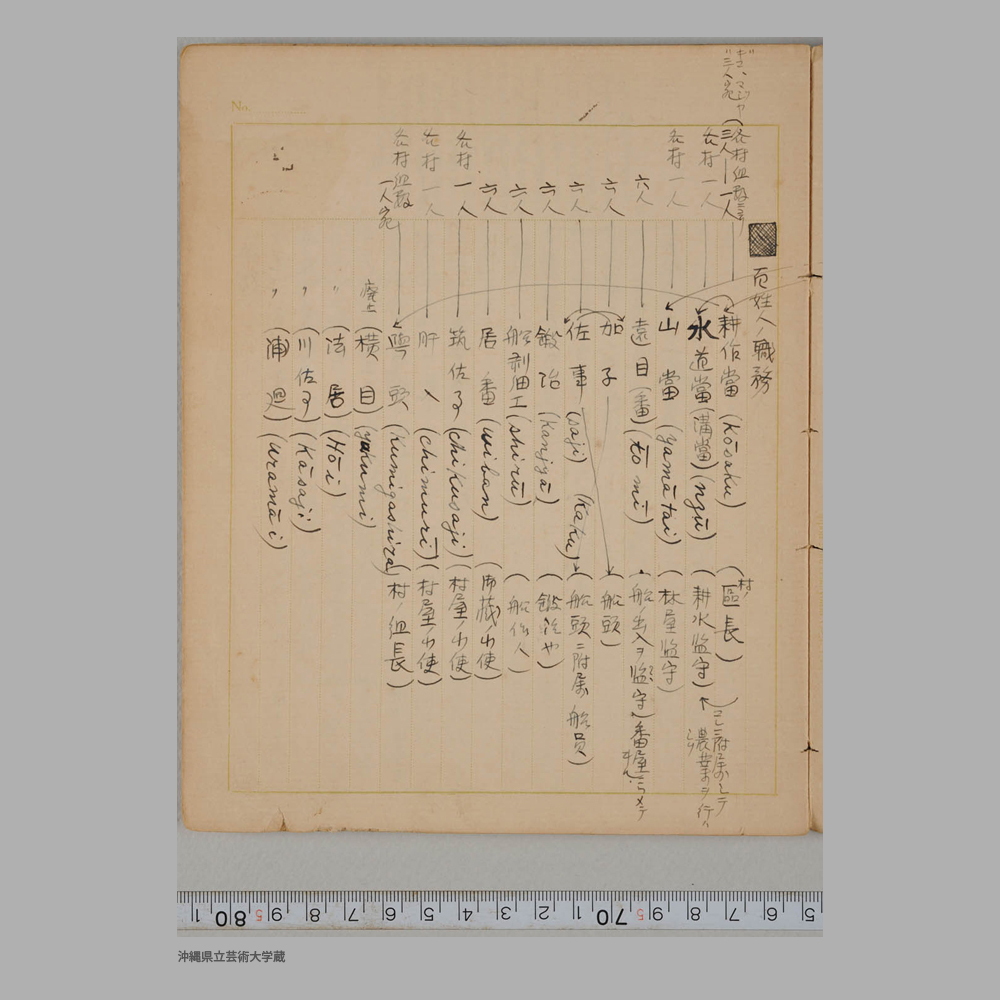 百姓人ノ職務
各村組數ニヨリ
三人―一人
耕作當 (Kōsaku) (村ノ區長)
各村一人
永道當(溝當)(ngū) (耕水監守)
コレニ附屬
農業ヲ行
各村一人
山當 (yamātai) (林屋監守)
六人
遠目(番) (tō mī) (船出入ヲ監守) 番屋
六人
加子 (船頭)
六人
佐事 (saji) (Kaku) (船頭ニ附属船員)
六人
鍛冶 (Kanjyā)
六人
船剥細工 (shirū) (船作人)
六人
居番 (wiban) (御蔵小使)
各村一人
筑佐子 (chikusaji) (村屋小使)
各村一人
肝 (chimuri) (村屋小使)
各村組數
一人宛
與頭 (Kumigashira) (村ノ組長)
廢止 (橫目) (yakumi)
〃 (法居) (Hōi)
〃 (川佐事) (Kāsaji)
〃 (浦廻) (uramāi)
No.
1 80 5 9 8 7 6 5 4 3 2 1 70 5 9 8 7 6 5
沖縄県立芸術大学蔵